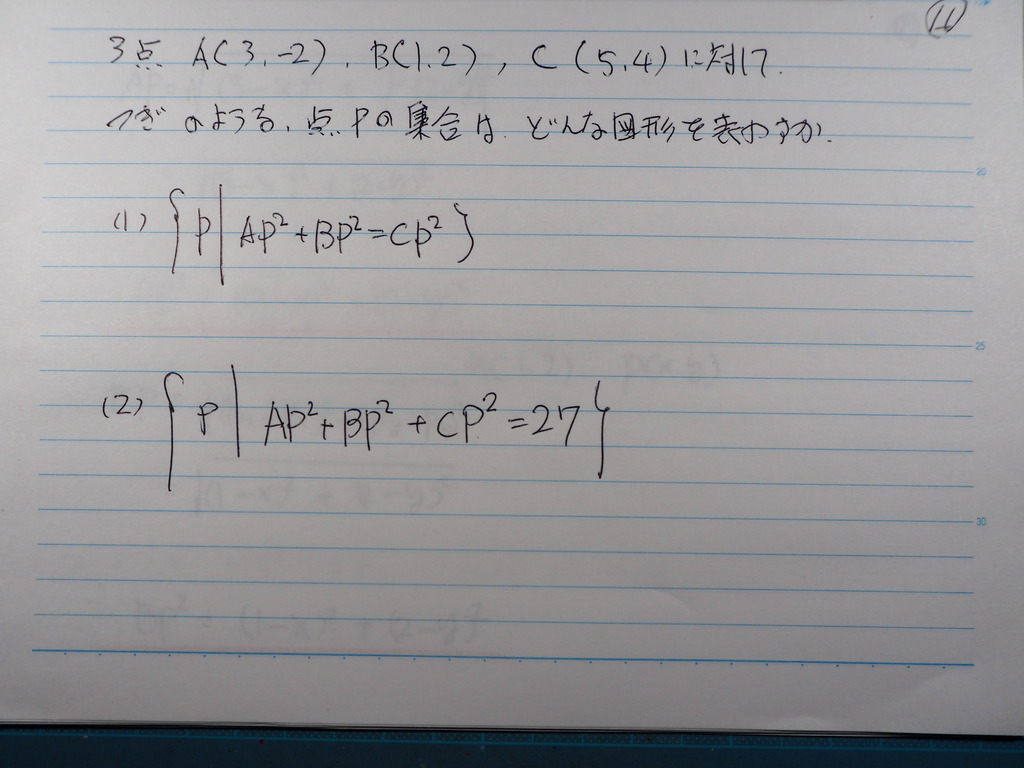 (11)
3点 A(3,-2), B(1,2), C(5,4)に対して.
つぎのような、点Pの集合は、どんな図形を表わすか.
20
(1) {P | AP²+BP²=CP²}
25
(2) {P | AP²+BP²+CP²=27}
30